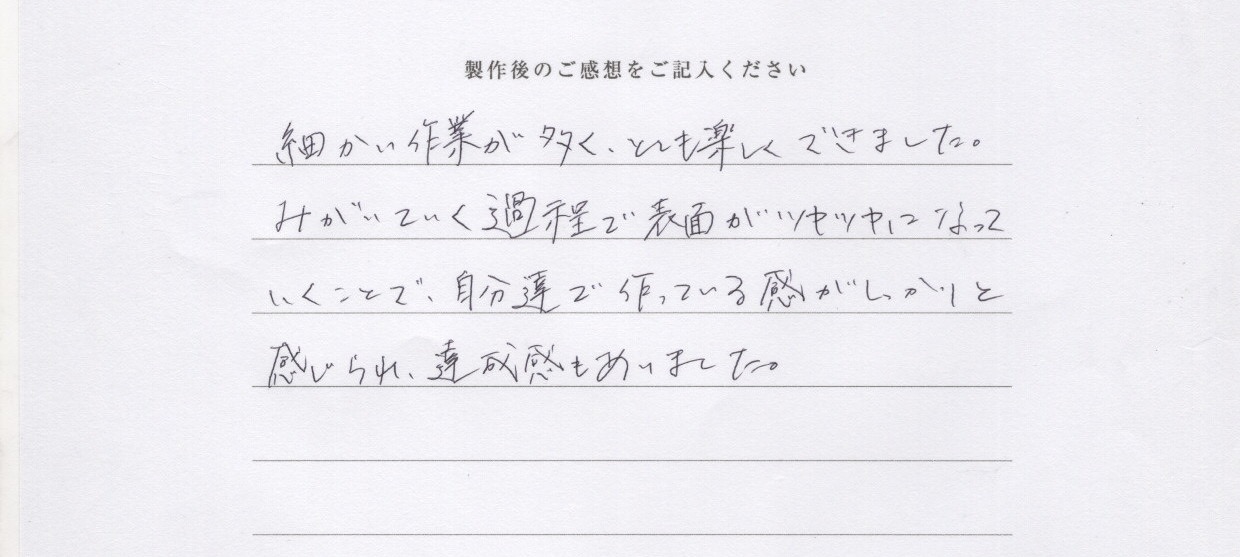 製作後のご感想をご記入ください
細かい作業が多く、とても楽しくできました。
みがいていく過程で表面がツヤツヤになって
いくことで、自分達で作っている感がしっかりと
感じられ、達成感もありました。